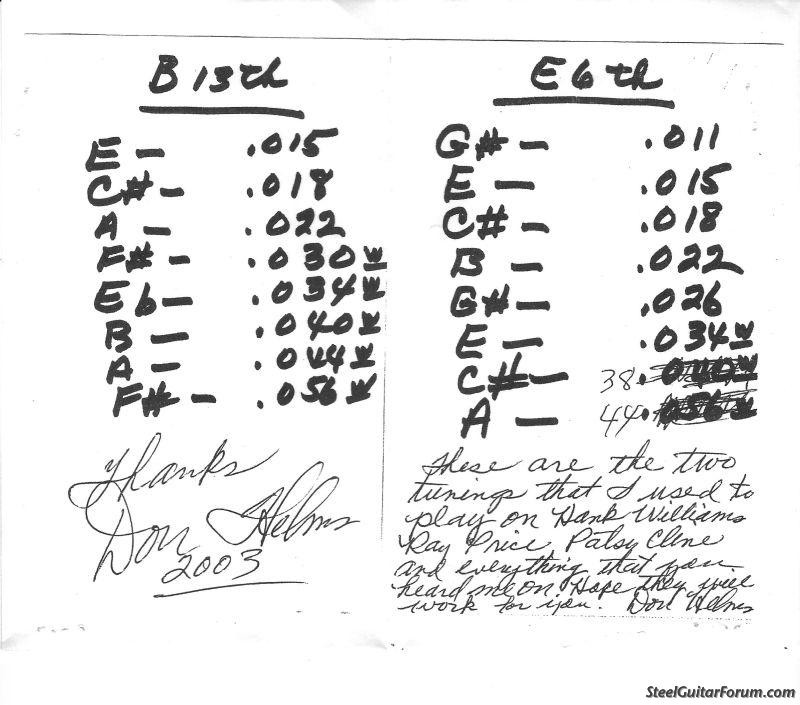 B 13th
E – .015
C# – .018
A – .022
F# – .030 W
Eb – .034 W
B – .040 W
A – .044 W
F# – .056 W
Thanks
Don Helms
2003
E 6th
G# – .011
E – .015
C# – .018
B – .022
G# – .026
E – .034 W
C# – 38 .040 W
A – 44 .056 W
These are the two
tunings that I used to
play on Hank Williams
Ray Price, Patsy Cline
and everything that you
heard me on. Hope they will
work for you. Don Helms
SteelGuitarForum.com